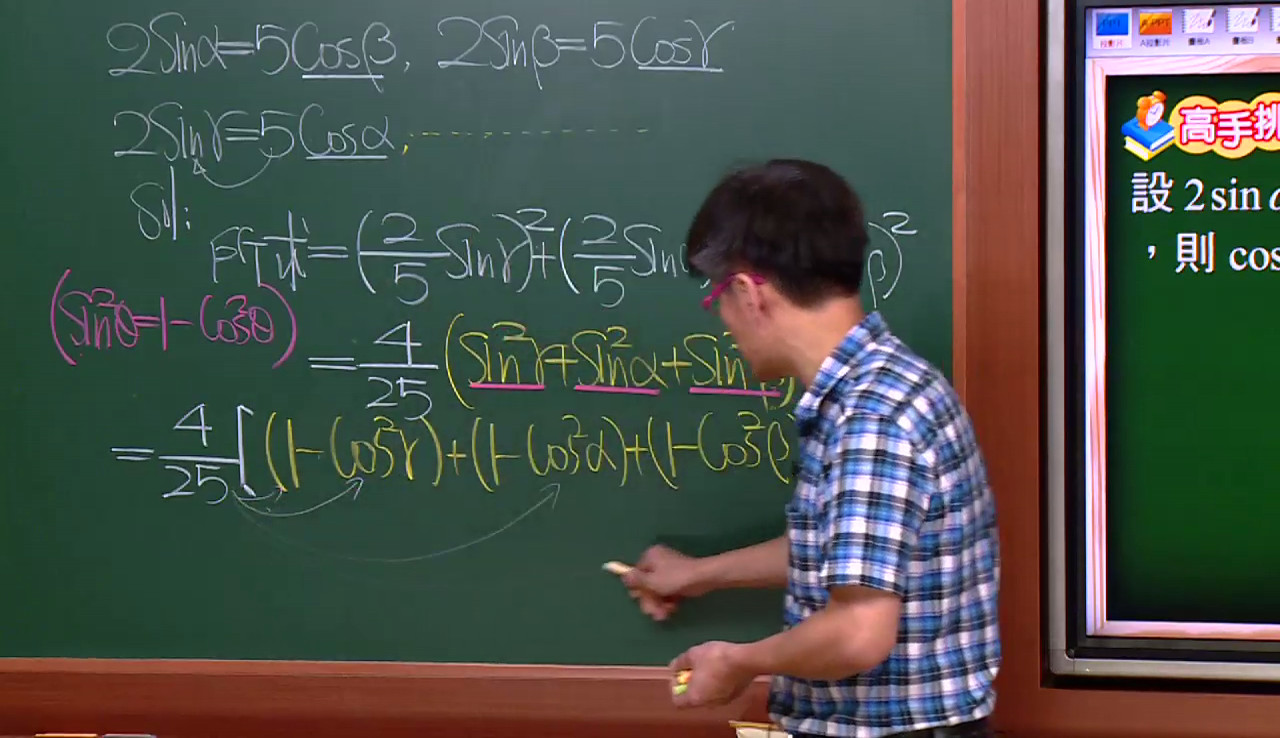 2Sinα=5Cosβ, 2Sinβ=5Cosγ
2Sinγ=5Cosα,
Sol:
所求=(2/5 Sinγ)²+(2/5 Sin β)²
(Sin²θ=1-Cos²θ)
=4/25(Sin²γ+Sin²α+Sin²β)
=4/25[(1-Cos²γ)+(1-Cos²α)+(1-Cos²β)
高手挑
設 2 sin
，則 cos